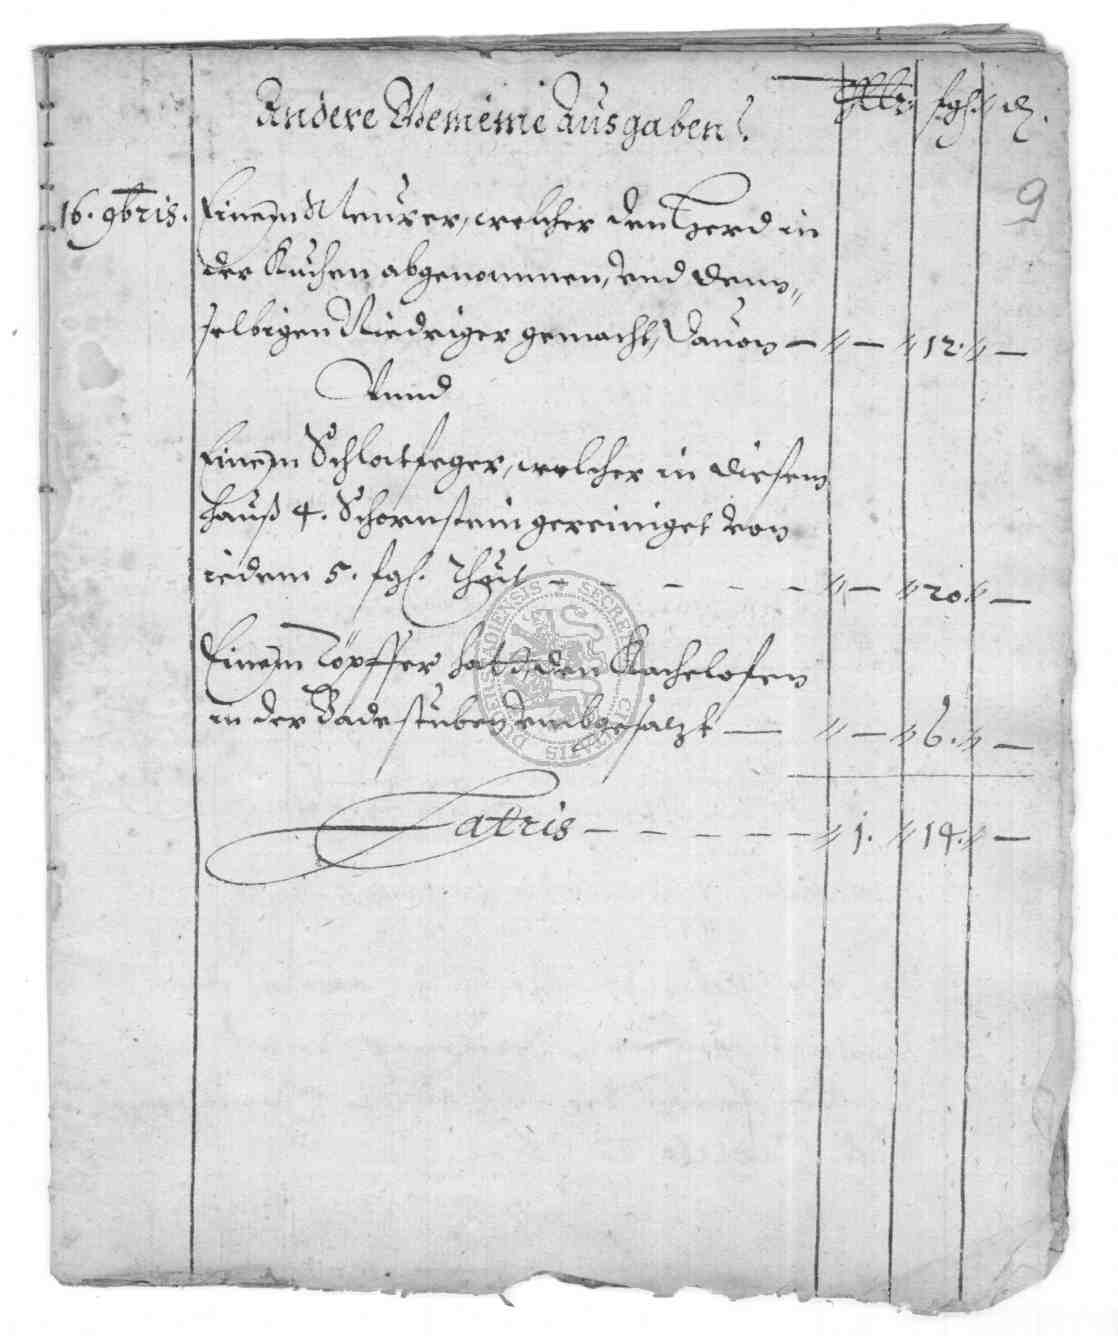 Andere Gemeine Ausgaben.
fgl. d.
9
16. 9bris. Einem Meurer, welcher den Herd in
der Kuchen abgenommen, vnd dem„
selbigen Niedriger gemacht, dauon — „ — „ 12. „ —
Vnnd
Einem Schlotfeger, welcher in diesem
hauß 4. Schornstein gereiniget von
iedem 5. fgl. thut - - - - - „ — „ 20 „ —
Einem Töpffer hatt den Kachelofen
in der Badestuben vmbgesatzt — „ — „ 6. „ —
Latris - - - - - - „ 1. „ 14. „ —